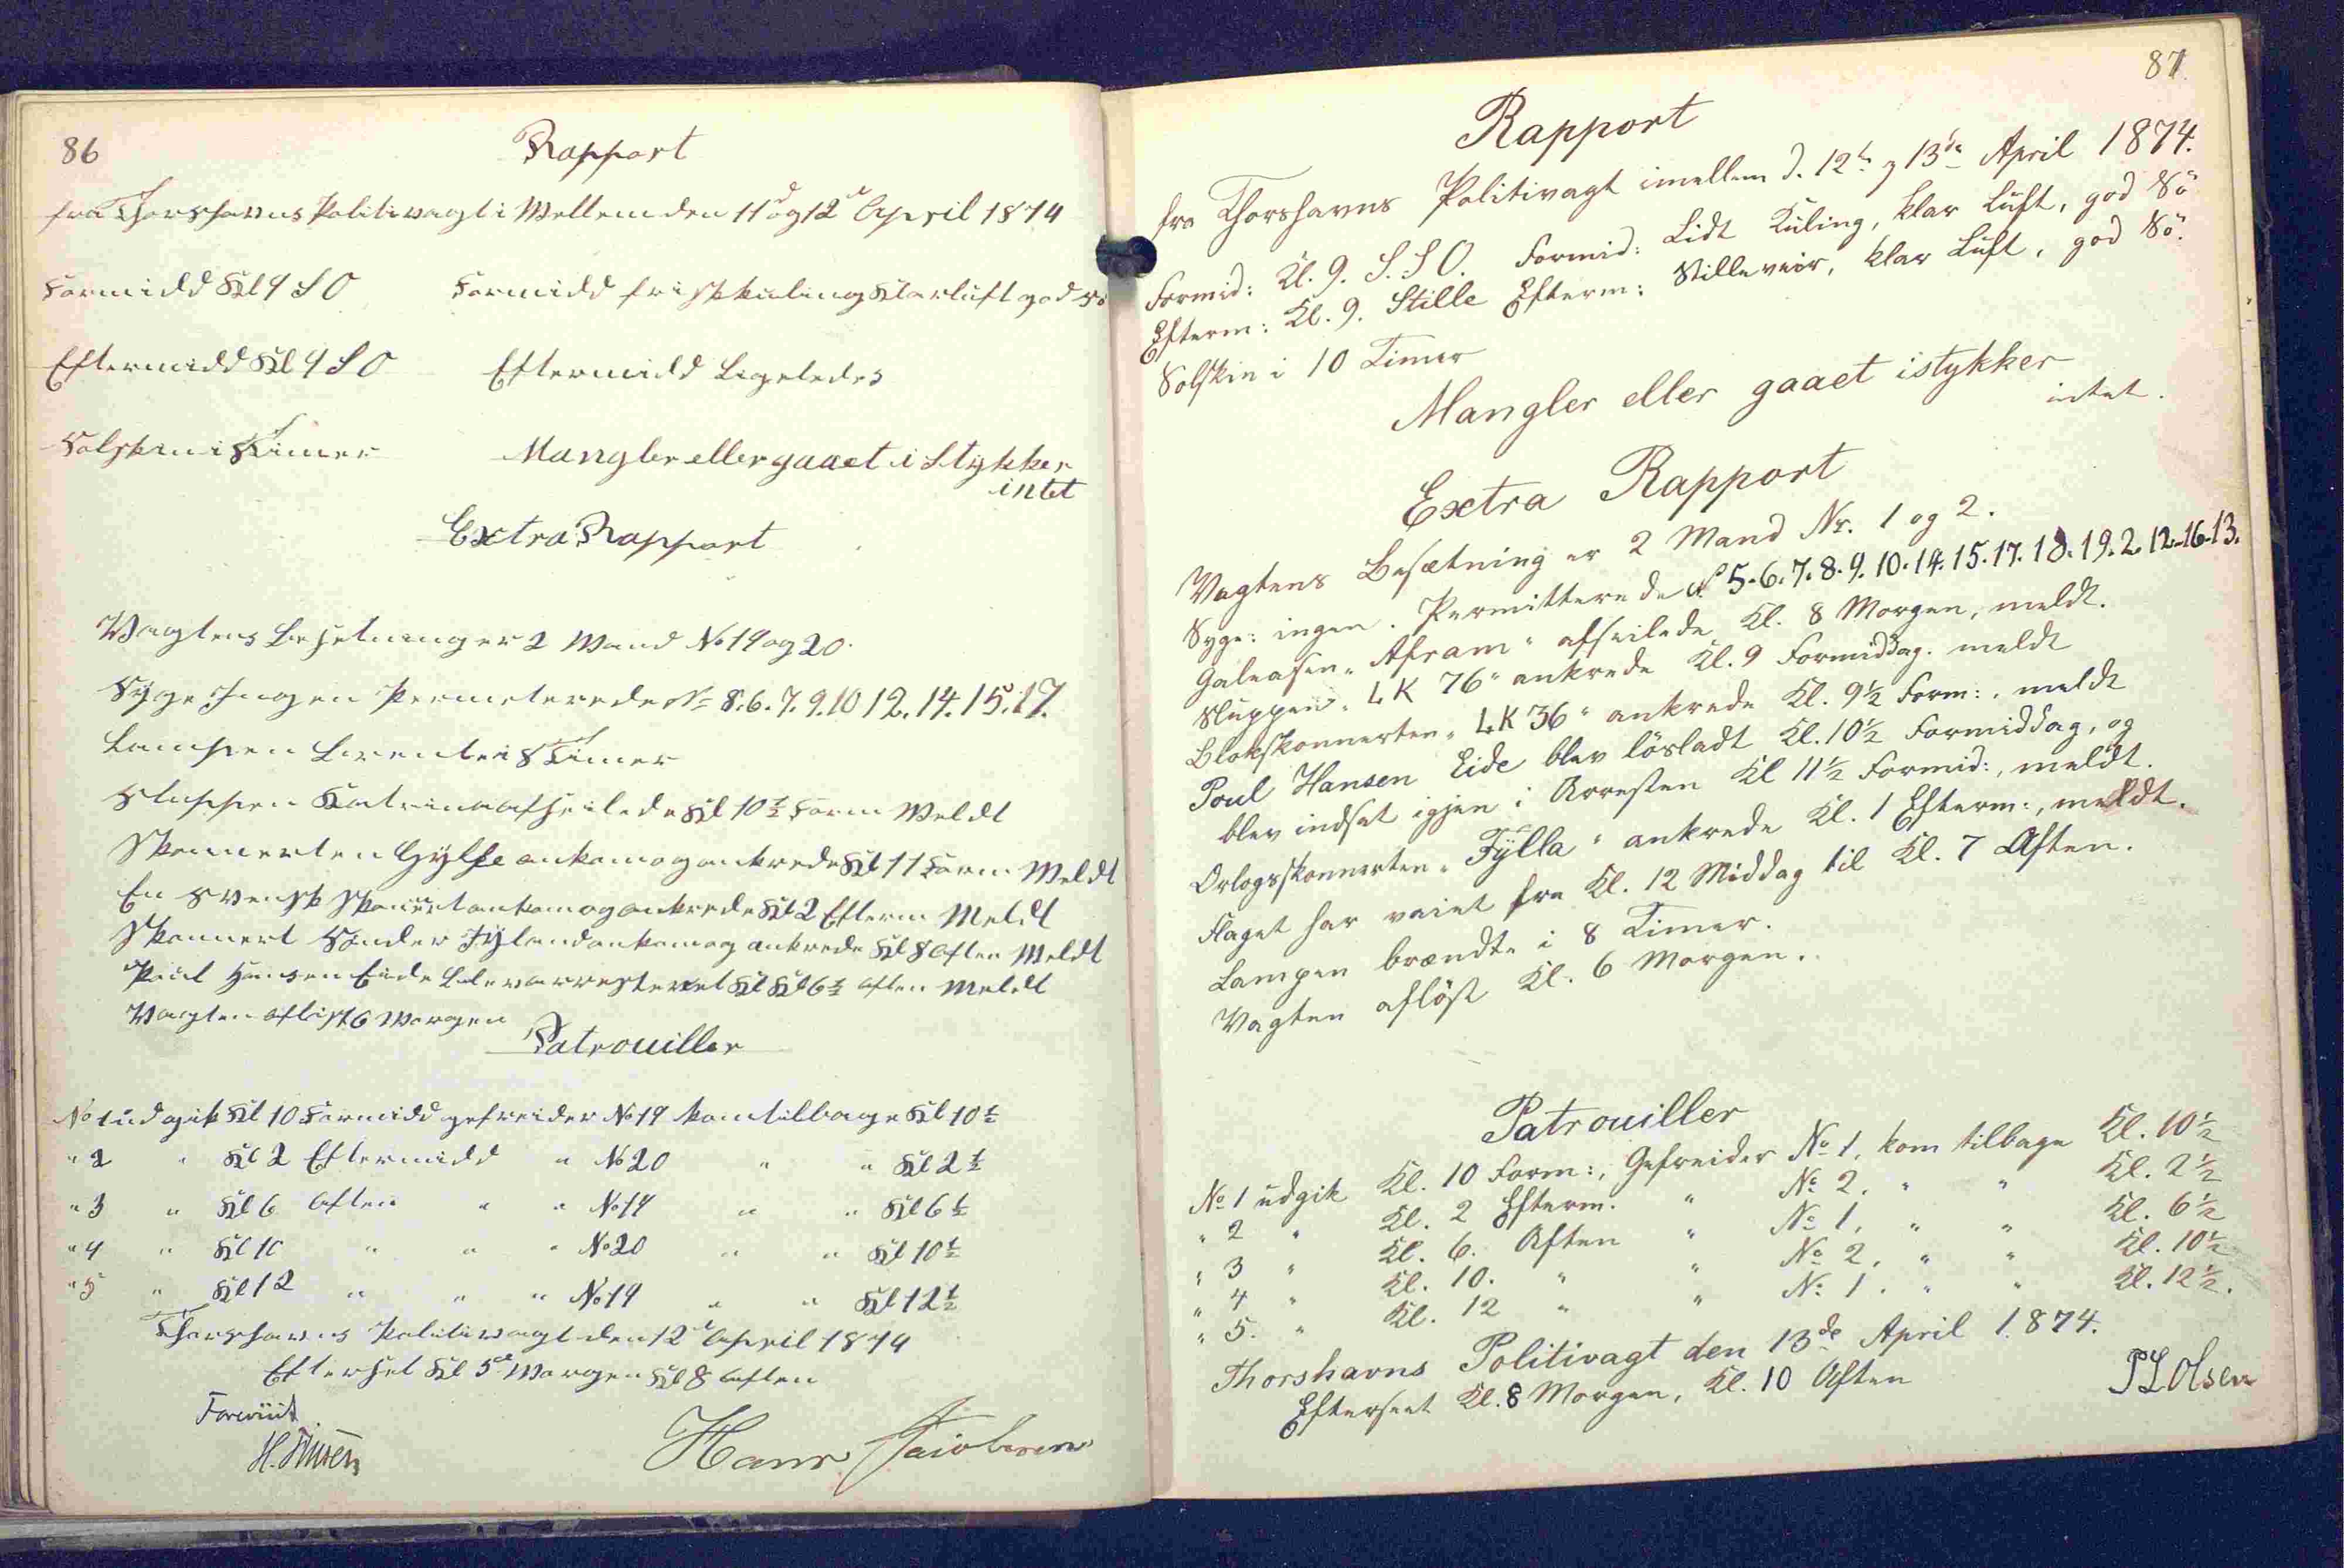 86
Rapport
fra Thorshavns Politivagt i Mellem den 11d og 12d April 1874
Formidd Kl 9 SO Formidd frisk kuling Klarluft god Sö
Eftermidd Kl 9 SO Eftermidd Ligeledes
Solskin i Timer Mangler eller gaaet i Stykker
intet
Extra Rapport
Vagtens Besetning er 2 Mand No 19 og 20.
Syge Ingen Permeterede No 8.6.7.9.10 12.14.15.17.
Lampen Brente i 8 Timer
Sluppen Katrina afseilede Kl 10½ Form Meldt
Skonnerten Gylfe ankom og ankrede Kl 11 Form Meldt
En Svensk Skonnert ankom og ankrede Kl 2 Efterm Meldt
Skonnert Sönder Jyland ankom og ankrede Kl 8 Aften Meldt
Poul Hansen Eide blev arresteret Kl Kl 6½ Aften Meldt
Vagten aflöst 6 Morgen
Patrouiller
No 1 udgik Kl 10 Formidd gefreider No 19 kom tilbage Kl 10½
" 2 " Kl 2 Eftermidd " No 20 " " Kl 2½
" 3 " Kl 6 Aften " " No 19 " " Kl 6½
" 4 " Kl 10 " " " No 20 " " Kl 10½
" 5 " Kl 12 " " " No 19 " " Kl 12½
Thorshavns Politivagt den 12d April 1874
Efterset Kl 5 Morgen Kl 8 Aften
Hans Jacobsen
87.
Rapport
fra Thorshavns Politivagt imellem d. 12te og 13de April 1874.
Formid: Kl. 9. S.SO. Formid: Lidt Kuling, klar Luft, god Sö
Efterm: Kl. 9. Stille Efterm: Stilleveir, klar Luft, god Sö.
Solskin i 10 Timer
Mangler eller gaaet istykker
intet.
Extra Rapport
Vagtens Besætning er 2 Mand Nr. 1 og 2.
Syge: ingen. Permitterede No 5.6.7.8.9.10.14.15.17.18.19.2.12.16.13.
Galeasen "Afram" afseilede Kl. 8 Morgen, meldt.
Sluppen "LK 76" ankrede Kl. 9 Formiddag. meldt
Blokskonnerten "LK 36" ankrede Kl. 9½ Form:, meldt
Poul Hansen Eide blev lösladt Kl. 10½ Formiddag, og
blev indsat igjen i Arresten Kl 11½ Formid:, meldt.
Orlogsskonnerten "Fylla" ankrede Kl. 1 Efterm:, meldt.
Flaget har vaiet fra Kl. 12 Middag til Kl. 7 Aften.
Lampen brændte i 8 Timer.
Vagten aflöst Kl. 6 Morgen.
Patrouiller
No 1 udgik Kl. 10 Form:, Gefreider No 1, kom tilbage Kl. 10½
" 2 " Kl. 2 Efterm. " No 2, " " Kl. 2½
" 3 " Kl. 6. Aften " No 1, " " Kl. 6½
" 4 " Kl. 10. " " No 2, " " Kl. 10½
" 5. " Kl. 12 " " No 1. " " Kl. 12½.
Thorshavns Politivagt den 13de April 1874.
Efterseet Kl. 8 Morgen, Kl. 10 Aften
PL Olsen